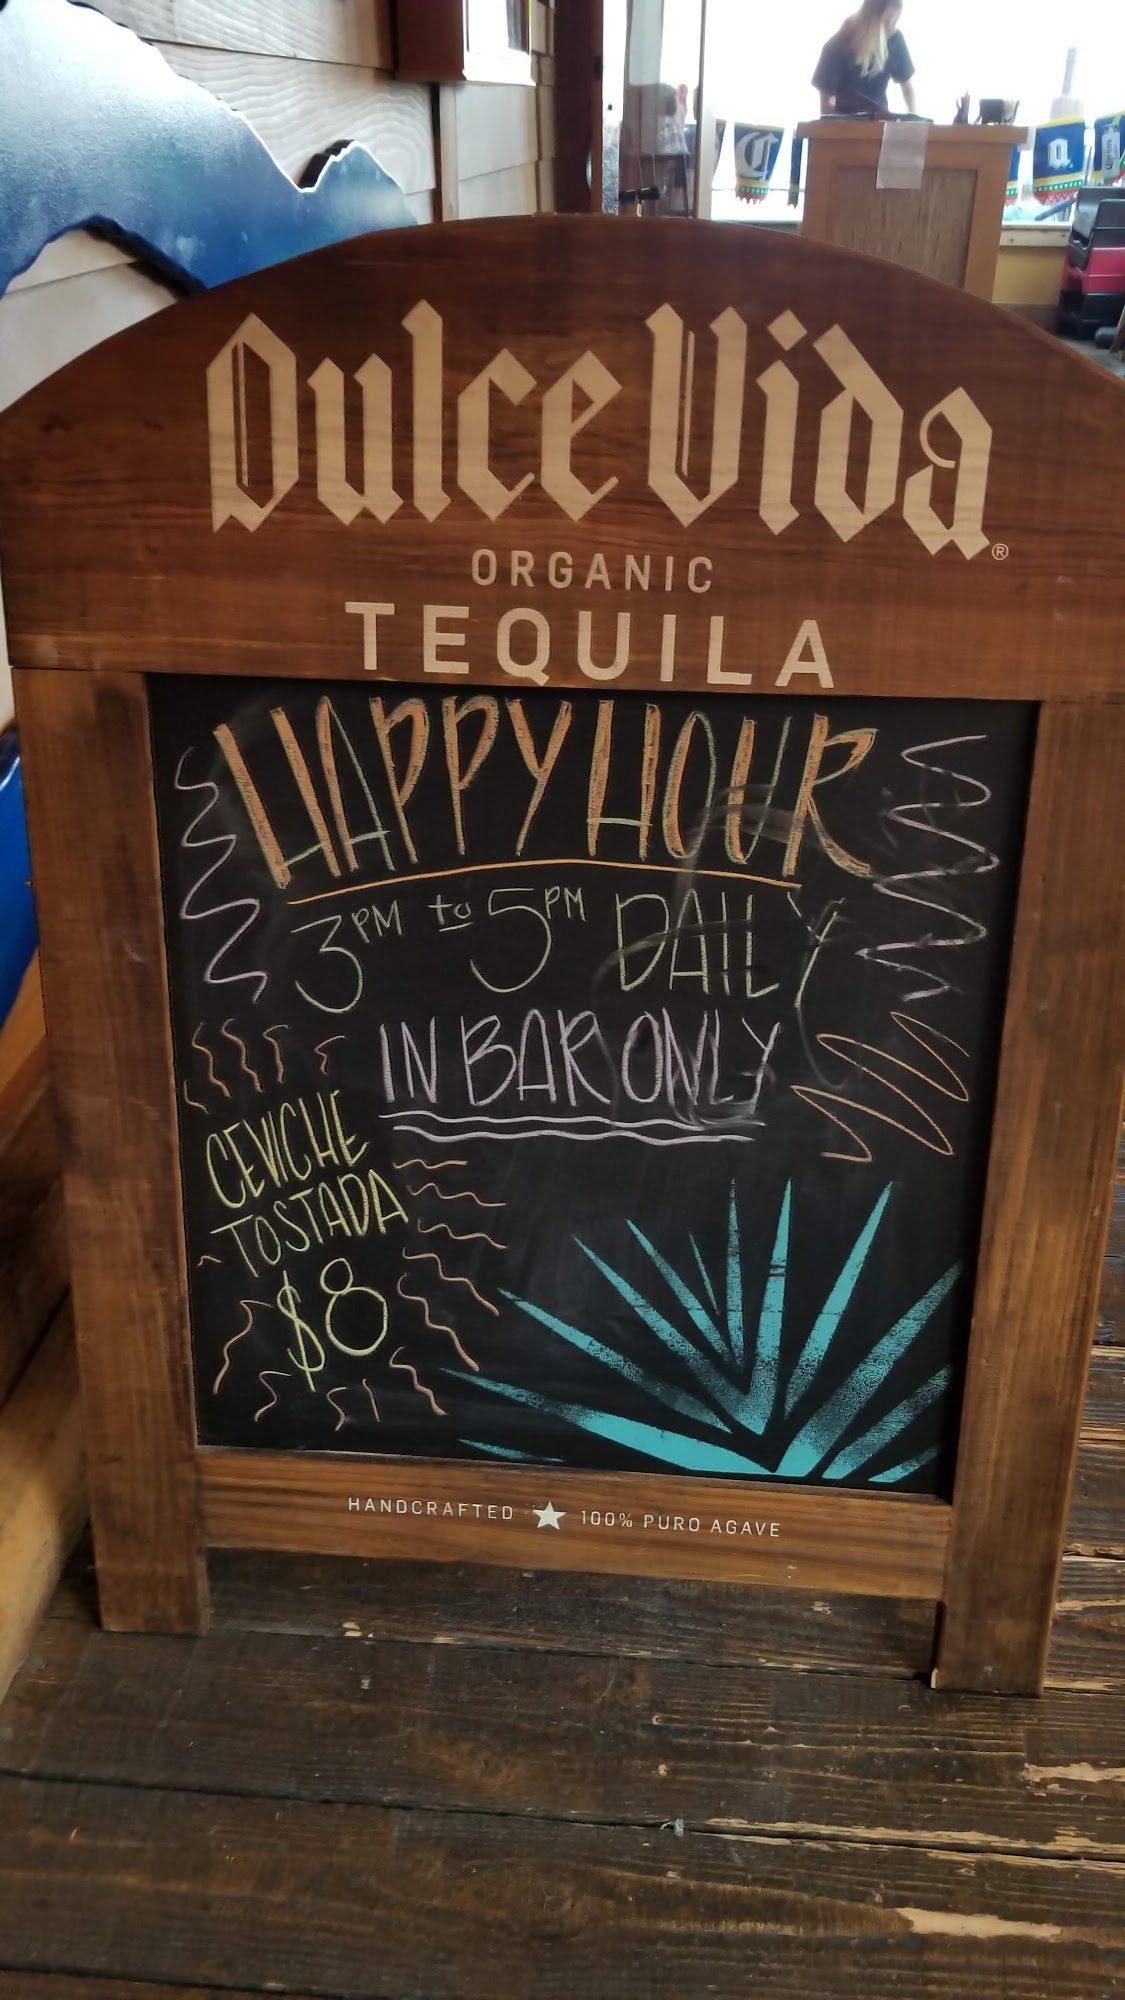 Dulce Vida®
ORGANIC
TEQUILA
HAPPY HOUR
3PM to 5PM DAILY
IN BAR ONLY
CEVICHE
TOSTADA
$8
HANDCRAFTED ★ 100% PURO AGAVE